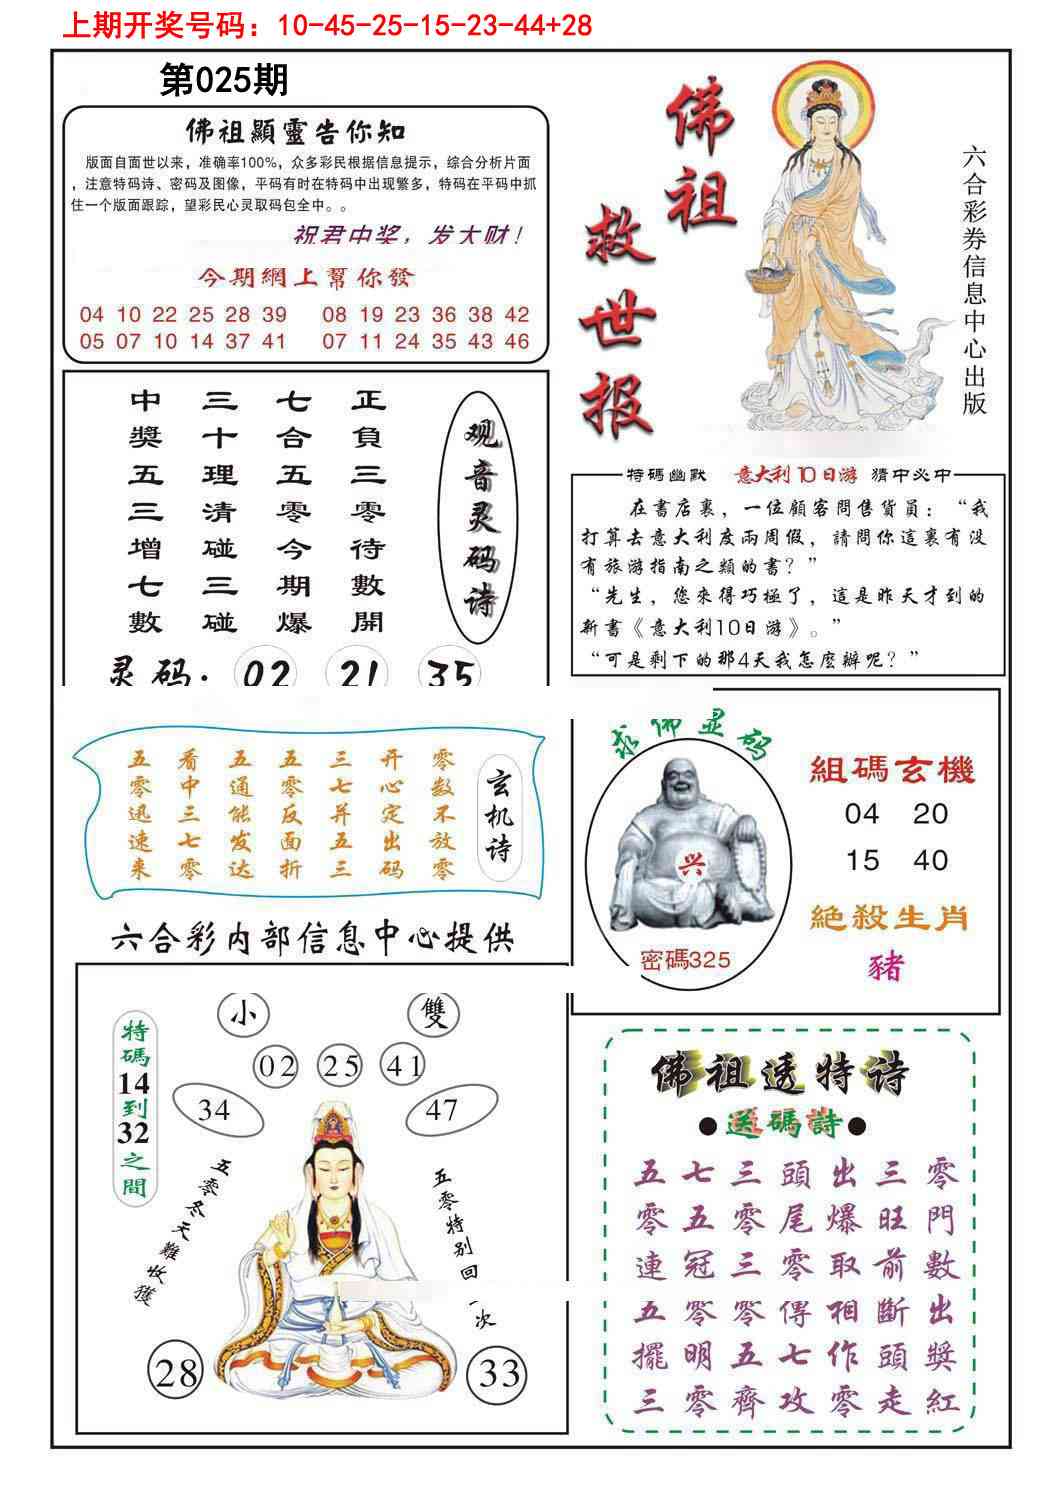 上期开奖号码：10-45-25-15-23-44+28
第025期
佛祖顯靈告你知
版面自面世以来，准确率100%，众多彩民根据信息提示，综合分析片面
，注意特码诗、密码及图像，平码有时在特码中出现繁多，特码在平码中抓
住一个版面跟踪，望彩民心灵取码包全中。。
祝君中奖，发大财！
今期網上幫你發
04 10 22 25 28 39 08 19 23 36 38 42
05 07 10 14 37 41 07 11 24 35 43 46
佛祖
救世报
六合彩券信息中心出版
观音灵码诗
正負三零待數開
七合五零今期爆
三十理清碰三碰
中獎五三增七數
灵码：02 21 35
特碼幽默 意大利10日游 猜中必中
在書店裏，一位顧客問售貨員：“我
打算去意大利度兩周假，請問你這裏有没
有旅游指南之類的書？”
“先生，您來得巧極了，這是昨天才到的
新書《意大利10日游》。”
“可是剩下的那4天我怎麽辦呢？”
玄机诗
零数不放零
开心定出码
三七并五三
五零反面折
五通能发达
看中三七零
五零迅速来
求佛显码
兴
密碼325
組碼玄機
04 20
15 40
絕殺生肖
豬
六合彩内部信息中心提供
特碼14到32之間
小 雙
02 25 41
34 47
五零冬天難收獲
五零特别回一次
28 33
佛祖透特诗
●送碼詩●
五七三頭出三零
零五零尾爆旺門
連冠三零取前數
五零零傳相斷出
擺明五七作頭獎
三零齊攻零走紅